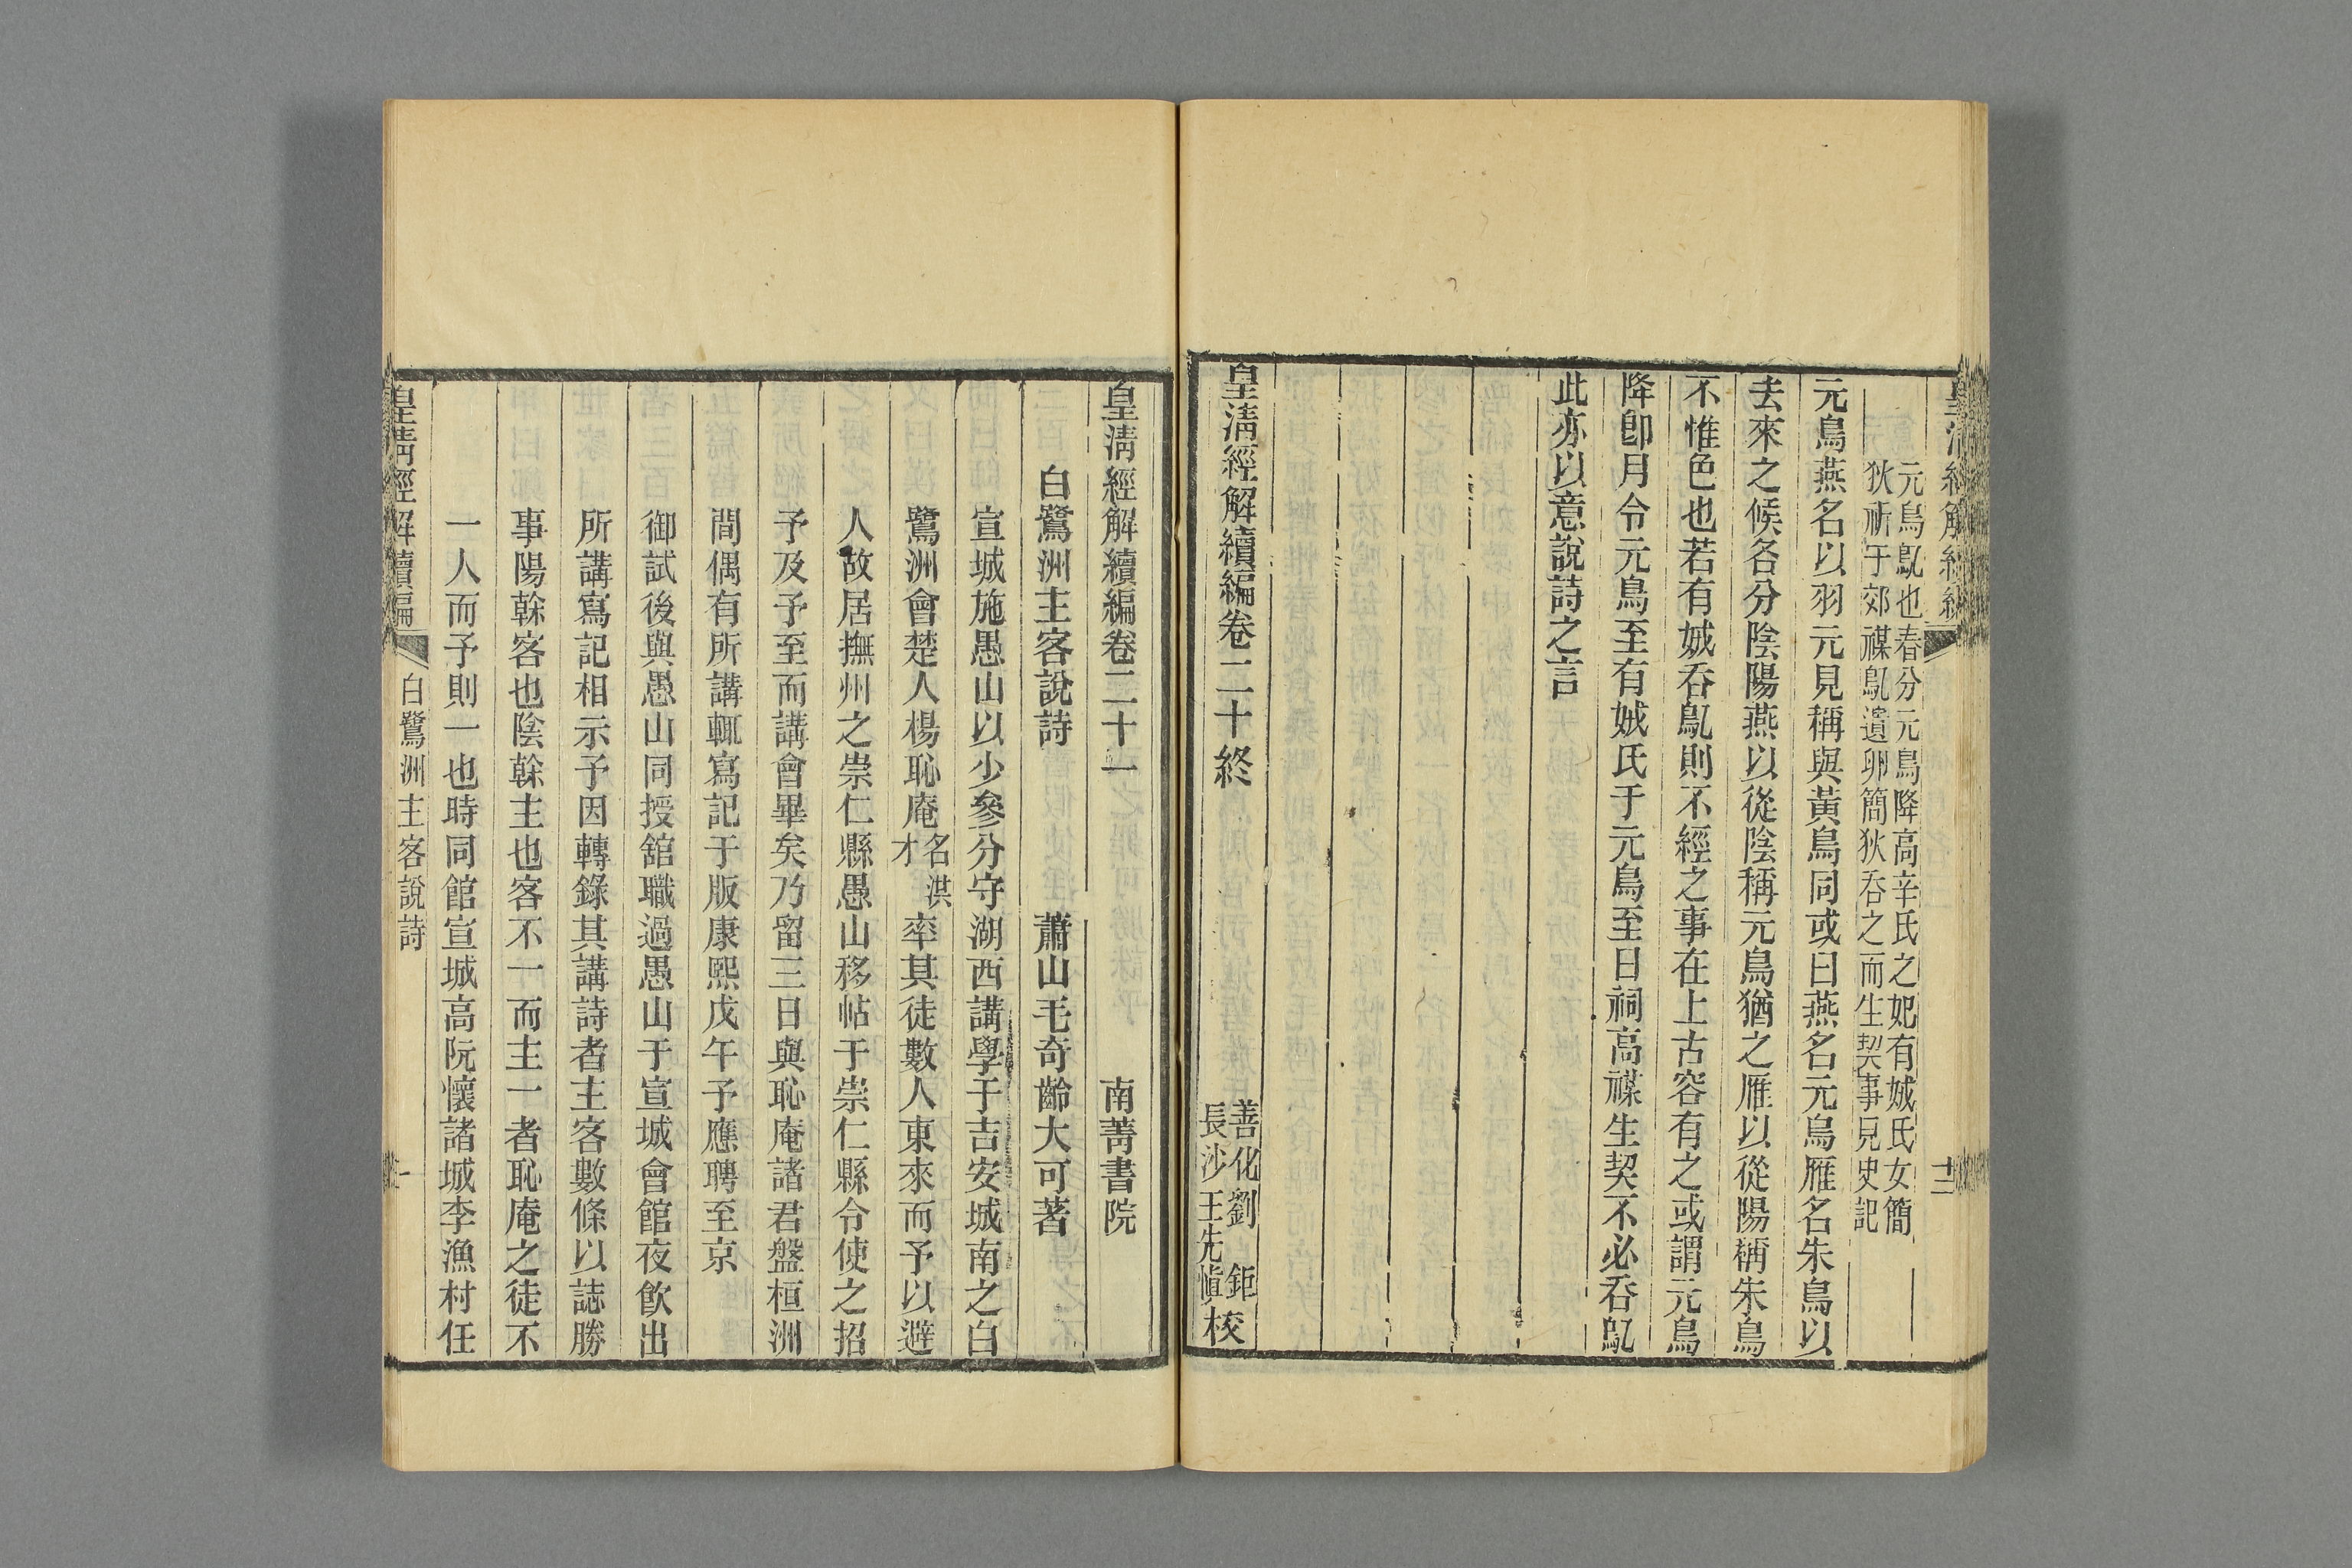 元鳥鳦也春分元鳥降高辛氏之妃有娀氏女簡
狄祈于郊禖鳦遺卵簡狄吞之而生契事見史記
元鳥燕名以羽元見稱與黃鳥同或曰燕名元鳥雁名朱鳥以
去來之候各分陰陽燕以從陰稱元鳥猶之雁以從陽稱朱鳥
不惟色也若有娀吞鳦則不經之事在上古容有之或謂元鳥
降卽月令元鳥至有娀氏于元鳥至日祠高禖生契不必吞鳦
此亦以意說詩之言
皇淸經解續編卷二十終
善化劉鉅
長沙王先愼校
皇淸經解續編卷二十一
南菁書院
白鷺洲主客說詩
蕭山毛奇齡大可著
宣城施愚山以少參分守湖西講學于吉安城南之白
鷺洲會楚人楊恥庵名洪才率其徒數人東來而予以避
人故居撫州之崇仁縣愚山移帖于崇仁縣令使之招
予及予至而講會畢矣乃留三日與恥庵諸君盤桓洲
間偶有所講輒寫記于版康熙戊午予應聘至京
御試後與愚山同授館職過愚山于宣城會館夜飮出
所講寫記相示予因轉錄其講詩者主客數條以誌勝
事陽榦客也陰榦主也客不一而主一者恥庵之徒不
一人而予則一也時同館宣城高阮懷諸城李漁村任
皇淸經解續編
白鷺洲主客說詩
一